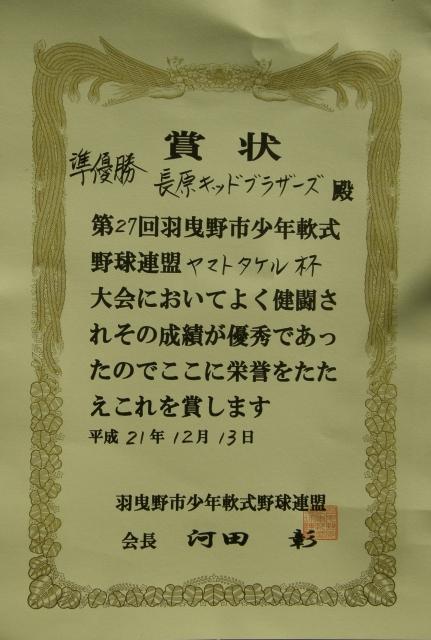 賞状
準優勝 長原キッドブラザーズ 殿
第27回羽曳野市少年軟式
野球連盟ヤマトタケル杯
大会においてよく健闘さ
れその成績が優秀であっ
たのでここに栄誉をたた
えこれを賞します
平成21年12月13日
羽曳野市少年軟式野球連盟
会長 河田 彰